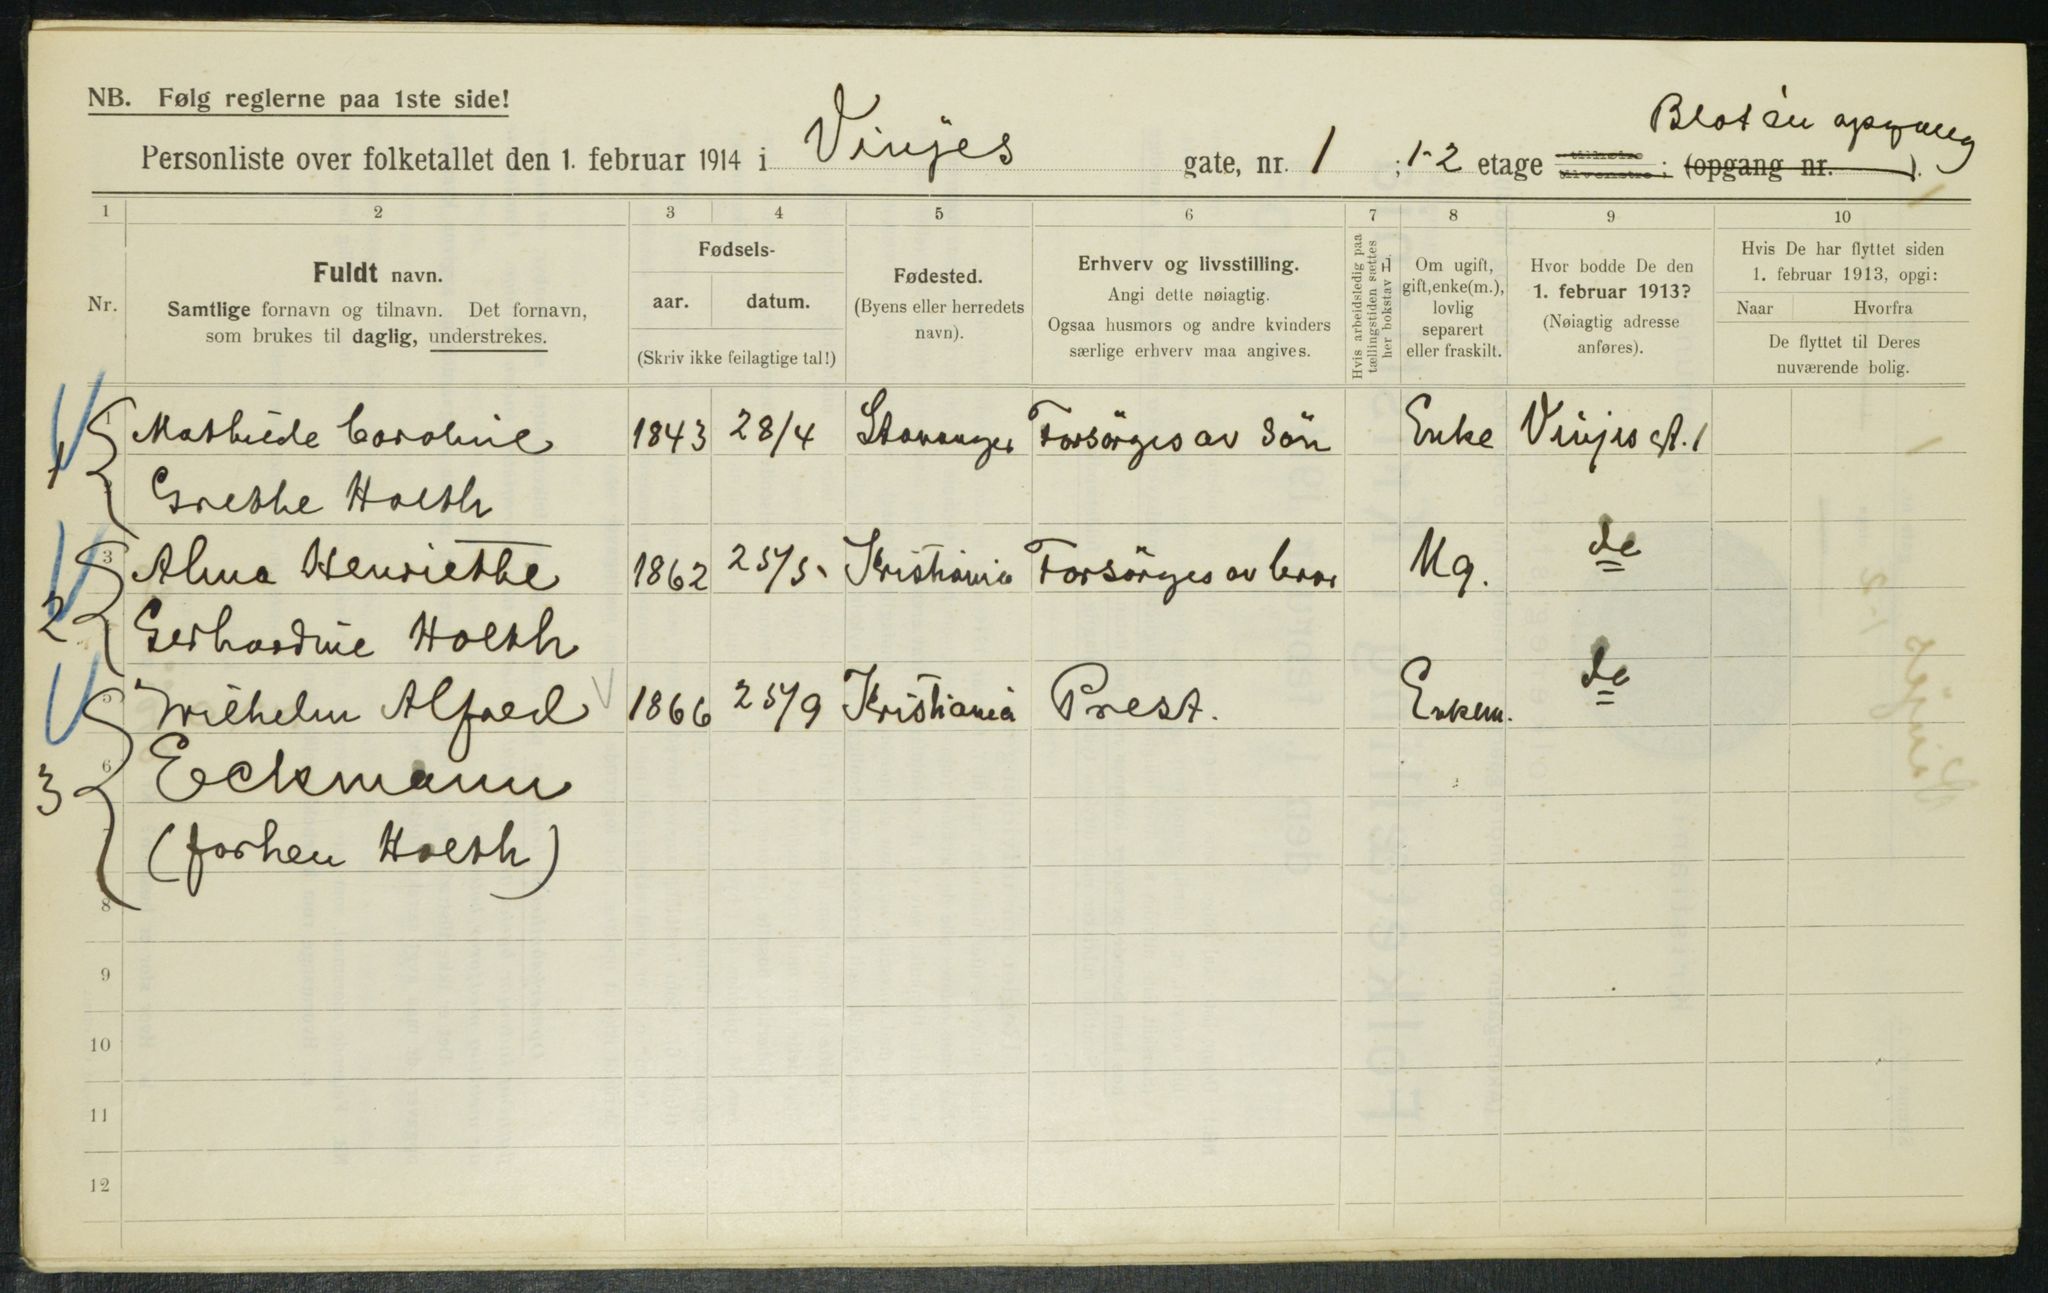 NB. Følg reglerne paa 1ste side!
Blot én opgang
Personliste over folketallet den 1. februar 1914 i Vinjes gate, nr. 1 ; 1-2 etage tilhøire tilvenstre ; (opgang nr. ).
1 2 3 4 5 6 7 8 9 10
Nr.
Fuldt navn.
Samtlige fornavn og tilnavn. Det fornavn,
som brukes til daglig, understrekes.
Fødsels-
aar. datum.
(Skriv ikke feilagtige tal!)
Fødested.
(Byens eller herredets
navn).
Erhverv og livsstilling.
Angi dette nøiagtig.
Ogsaa husmors og andre kvinders
særlige erhverv maa angives.
Hvis arbeidsledig paa
tællingstiden sættes
her bokstav L.
Om ugift,
gift, enke(m.),
lovlig
separert
eller fraskilt.
Hvor bodde De den
1. februar 1913?
(Nøiagtig adresse
anføres).
Hvis De har flyttet siden
1. februar 1913, opgi:
Naar Hvorfra
De flyttet til Deres
nuværende bolig.
1 Mathilde Caroline 1843 28/4 Stavanger Forsörges av sön Enke Vinjes gt. 1
Grethe Hoeth
2 3 Alma Henriethe 1862 25/5 Kristiania Forsörges av bror Ug. do
Gerhardine Hoeth
3 5 Wilhelm Alfred 1866 25/9 Kristiania Prest. Enkem. do
6 Eckmann
(forhen Hoeth)
8
9
10
11
12